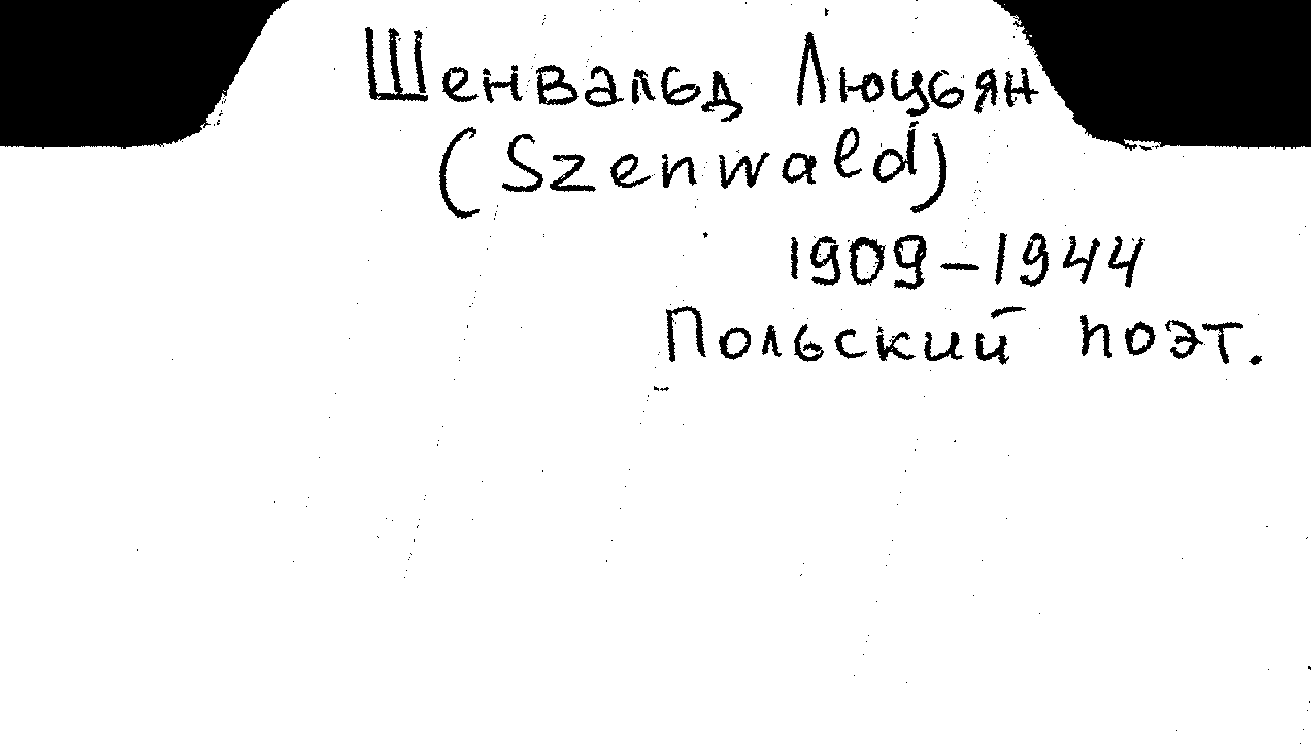 Шенвальд Люцьян
(Szenwald)
1909-1944
Польский поэт.